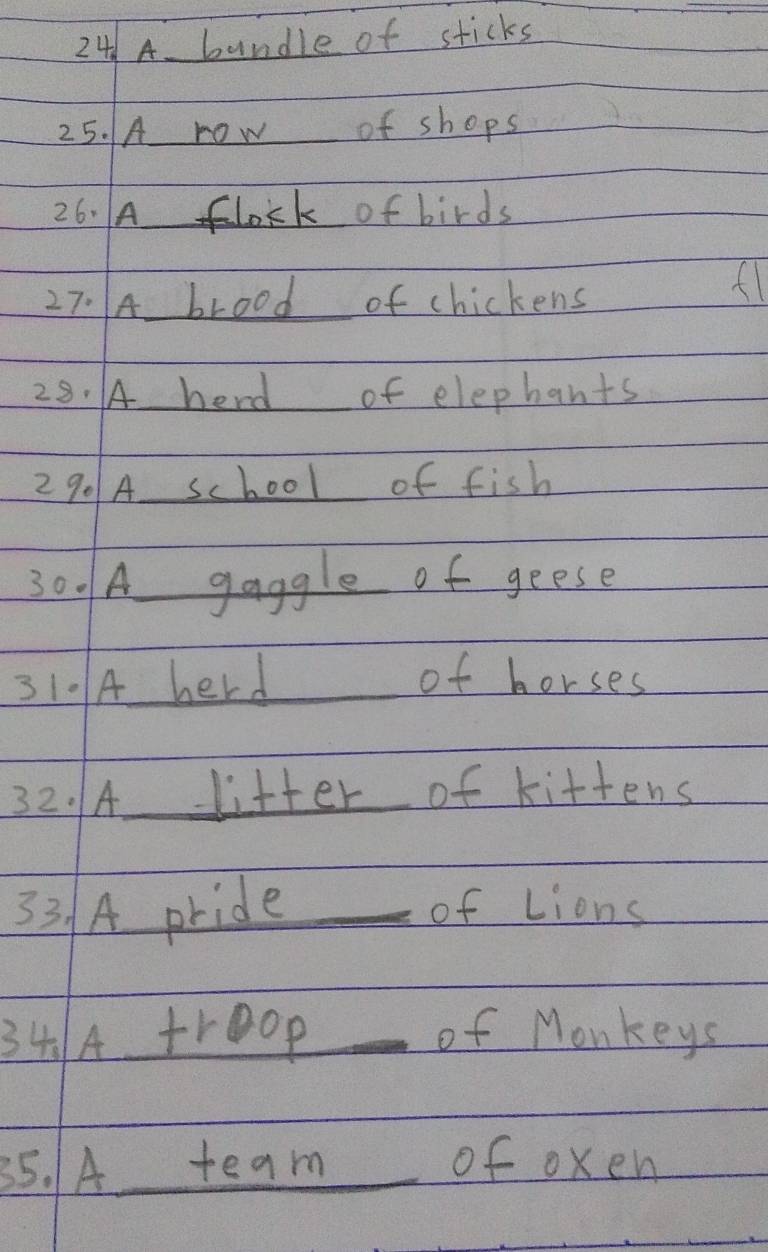 24. A bundle of sticks
25. A row of shops
26. A flokk of birds
fl
27. A brood of chickens
28. A herd of elephants
29. A school of fish
30. A gaggle of geese
31. A herd of horses
32. A litter of kittens
33. A pride of Lions
34. A troop of Monkeys
35. A team of oxen